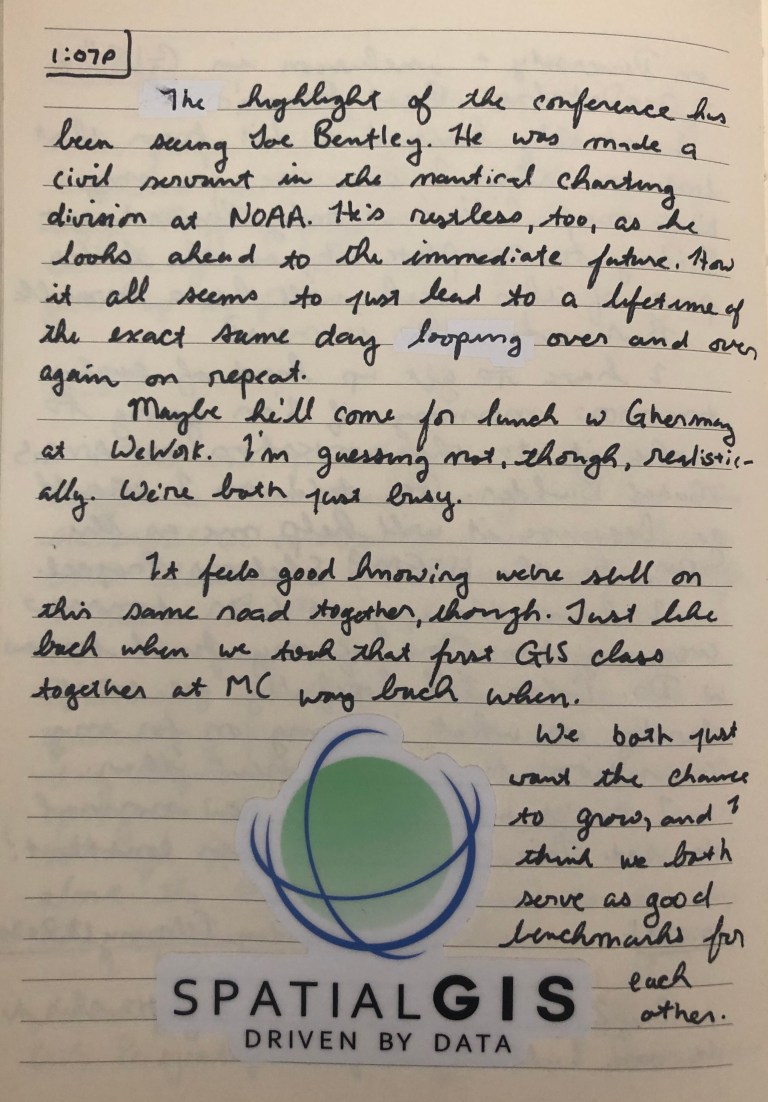 1:07P
The highlight of the conference has
been seeing Joe Bentley. He was made a
civil servant in the nautical charting
division at NOAA. He's restless, too, as he
looks ahead to the immediate future. How
it all seems to just lead to a lifetime of
the exact same day looping over and over
again on repeat.
Maybe he'll come for lunch w Ghermay
at WeWork. I'm guessing not, though, realistic-
ally. We're both just busy.
It feels good knowing we're still on
this same road together, though. Just like
back when we took that first GIS class
together at MC way back when.
We both just
want the chance
to grow, and I
think we both
serve as good
benchmarks for
each
other.
SPATIALGIS
DRIVEN BY DATA